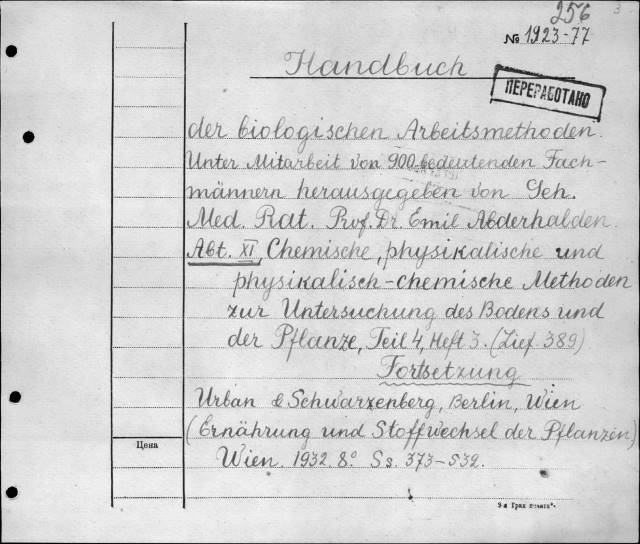 256
3
№ 1923-77
Handbuch
ПЕРЕРАБОТАНО
der biologischen Arbeitsmethoden.
Unter Mitarbeit von 900 bedeutenden Fach-
männern herausgegeben von Geh.
Med. Rat. Prof. Dr. Emil Abderhalden.
Abt. XI, Chemische, physikalische und
physikalisch-chemische Methoden
zur Untersuchung des Bodens und
der Pflanze, Teil 4, Heft 3. (Lief. 389)
Fortsetzung
Urban & Schwarzenberg, Berlin, Wien
(Ernährung und Stoffwechsel der Pflanzen)
Цена
Wien. 1932. 8° Ss. 373-532.